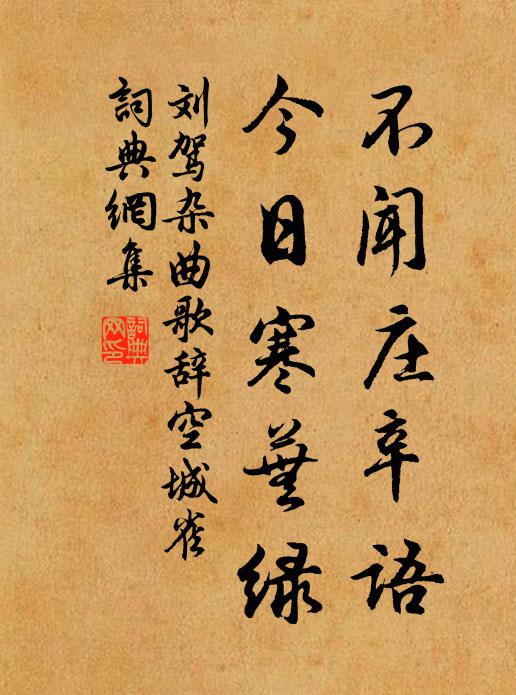 不闻庄辛语
今日寒蕪绿
刘驾杂曲歌辞空城雀
詞典網集
詞典網印